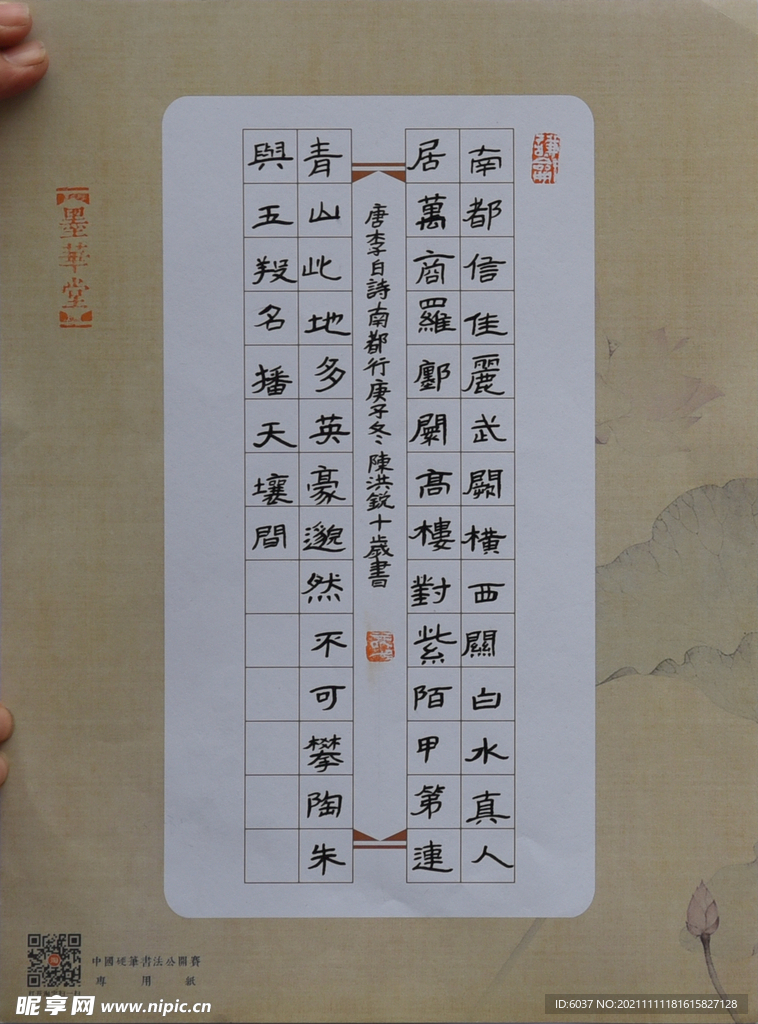 南都信佳麗武闕橫西關白水真人
居萬商羅鄽闤髙樓對紫陌甲第連
唐李白詩南都行庚子冬陳洪銳十歲書
青山此地多英豪邈然不可攀陶朱
與五羖名播天壤間
墨華堂
中國硬筆書法公開賽
專用紙
昵享网 www.nipic.cn
ID:6037 NO:20211111181615827128